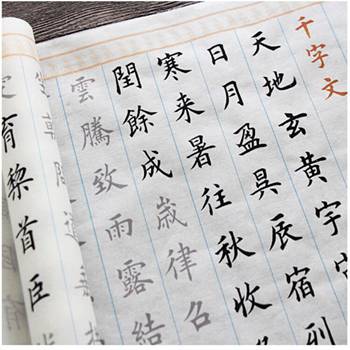 千字文
天地玄黄宇宙
日月盈昃辰宿列
寒来暑往秋收
閏餘成歲律
雲騰致雨露結
育黎首臣